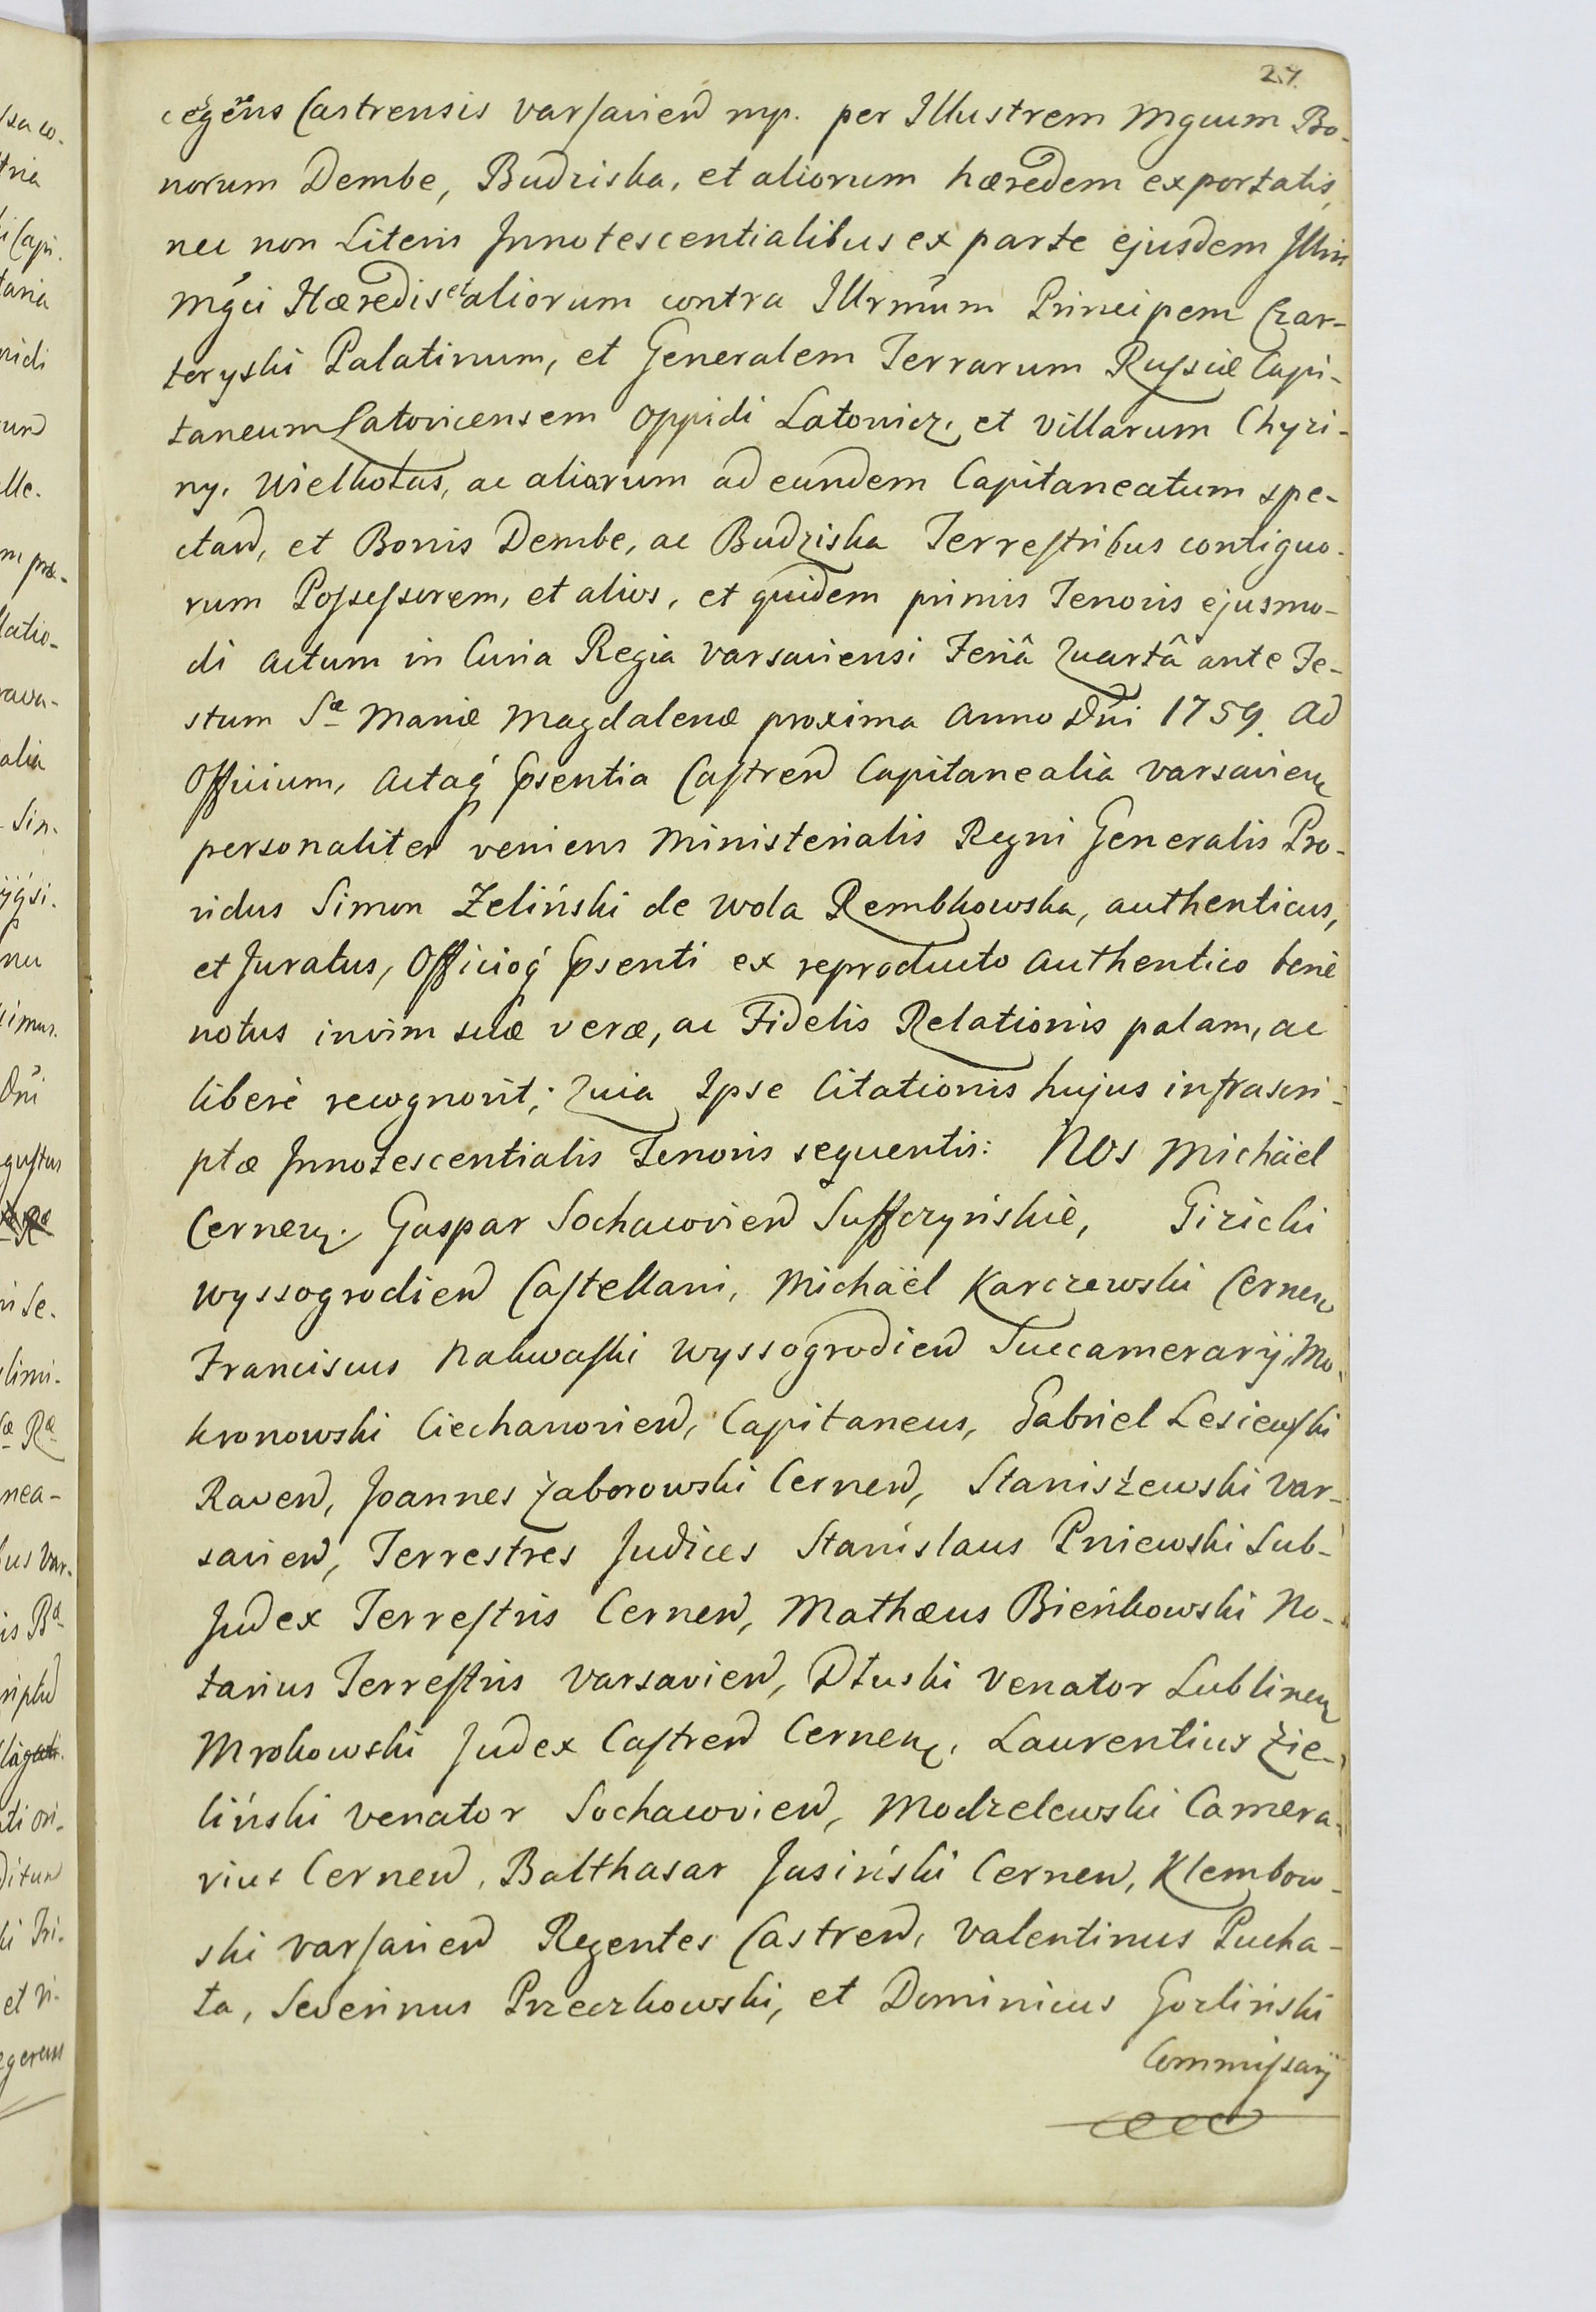 27.
cegens Castrensis Varsavien mp. per Illustrem Mgcum Bo-
norum Dembe, Budziska, et aliorum hæredem exportatis,
nec non Literis Innotescentialibus ex parte ejusdem Illris
Mgci Hæredis et aliorum contra Illrmum Principem Czar-
toryski Palatinum, et Generalem Terrarum Russiæ Capi-
taneum Latovicensem Oppidi Latowicz, et Villarum Chyzi-
ny, Wielkołas, ac aliorum ad eundem Capitaneatum spe-
ctan, et Bonis Dembe, ac Budziska Terrestribus contiguo-
rum Possessorem, et alios, et quidem primis Tenoris ejusmo-
di Actum in Curia Regia Varsaviensi Feriâ Quartâ ante Fe-
stum Sæ Mariæ Magdalenæ proxima Anno Dni 1759. Ad
Officium, Actaq psentia Castren Capitanealia Varsavien
personaliter veniens Ministerialis Regni Generalis Pro-
vidus Simon Zeliński de Wola Rembkowska, authenticus,
et Juratus, Officioq psenti ex reproducto Authentico benè
notus invim suæ veræ, ac Fidelis Relationis palam, ac
liberè recognovit; Quia Ipse Citationis hujus infrascri-
ptæ Innotescentialis Tenoris sequentis: Nos Michäel
Cernen, Gaspar Sochacovien Suffczyńskie, Gizicki
Wyssogrodien Castellani, Michäel Karczewski Cernen
Franciscus Nakwaski Wyssogrodien Succamerarij, Mo-
kronowski Ciechanovien, Capitaneus, Gabriel Lesiewski
Raven, Joannes Zaborowski Cernen, Staniszewski Var-
savien, Terrestres Judices Stanislaus Pniewski Sub-
Judex Terrestris Cernen, Mathæus Bieńkowski No-
tarius Terrestris Varsavien, Dłuski Venator Lublinen
Mrokowski Judex Castren Cernen, Laurentius Zie-
liński Venator Sochacovien, Modzelewski Camera-
rius Cernen, Balthasar Jasiński Cernen, Klembow-
ski Varsavien Regentes Castren, Valentinus Pucha-
ła, Severinus Przeczkowski, et Dominicus Gozliński
Commissarij